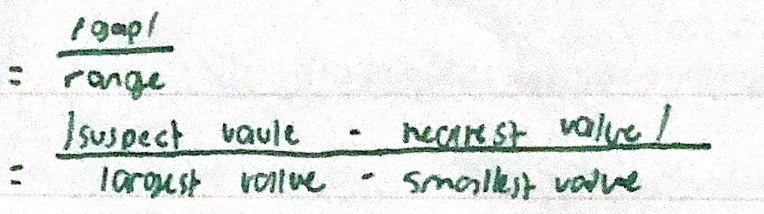 = |gap| / range
= |suspect vaule - nearest value| / largest value - smallest value